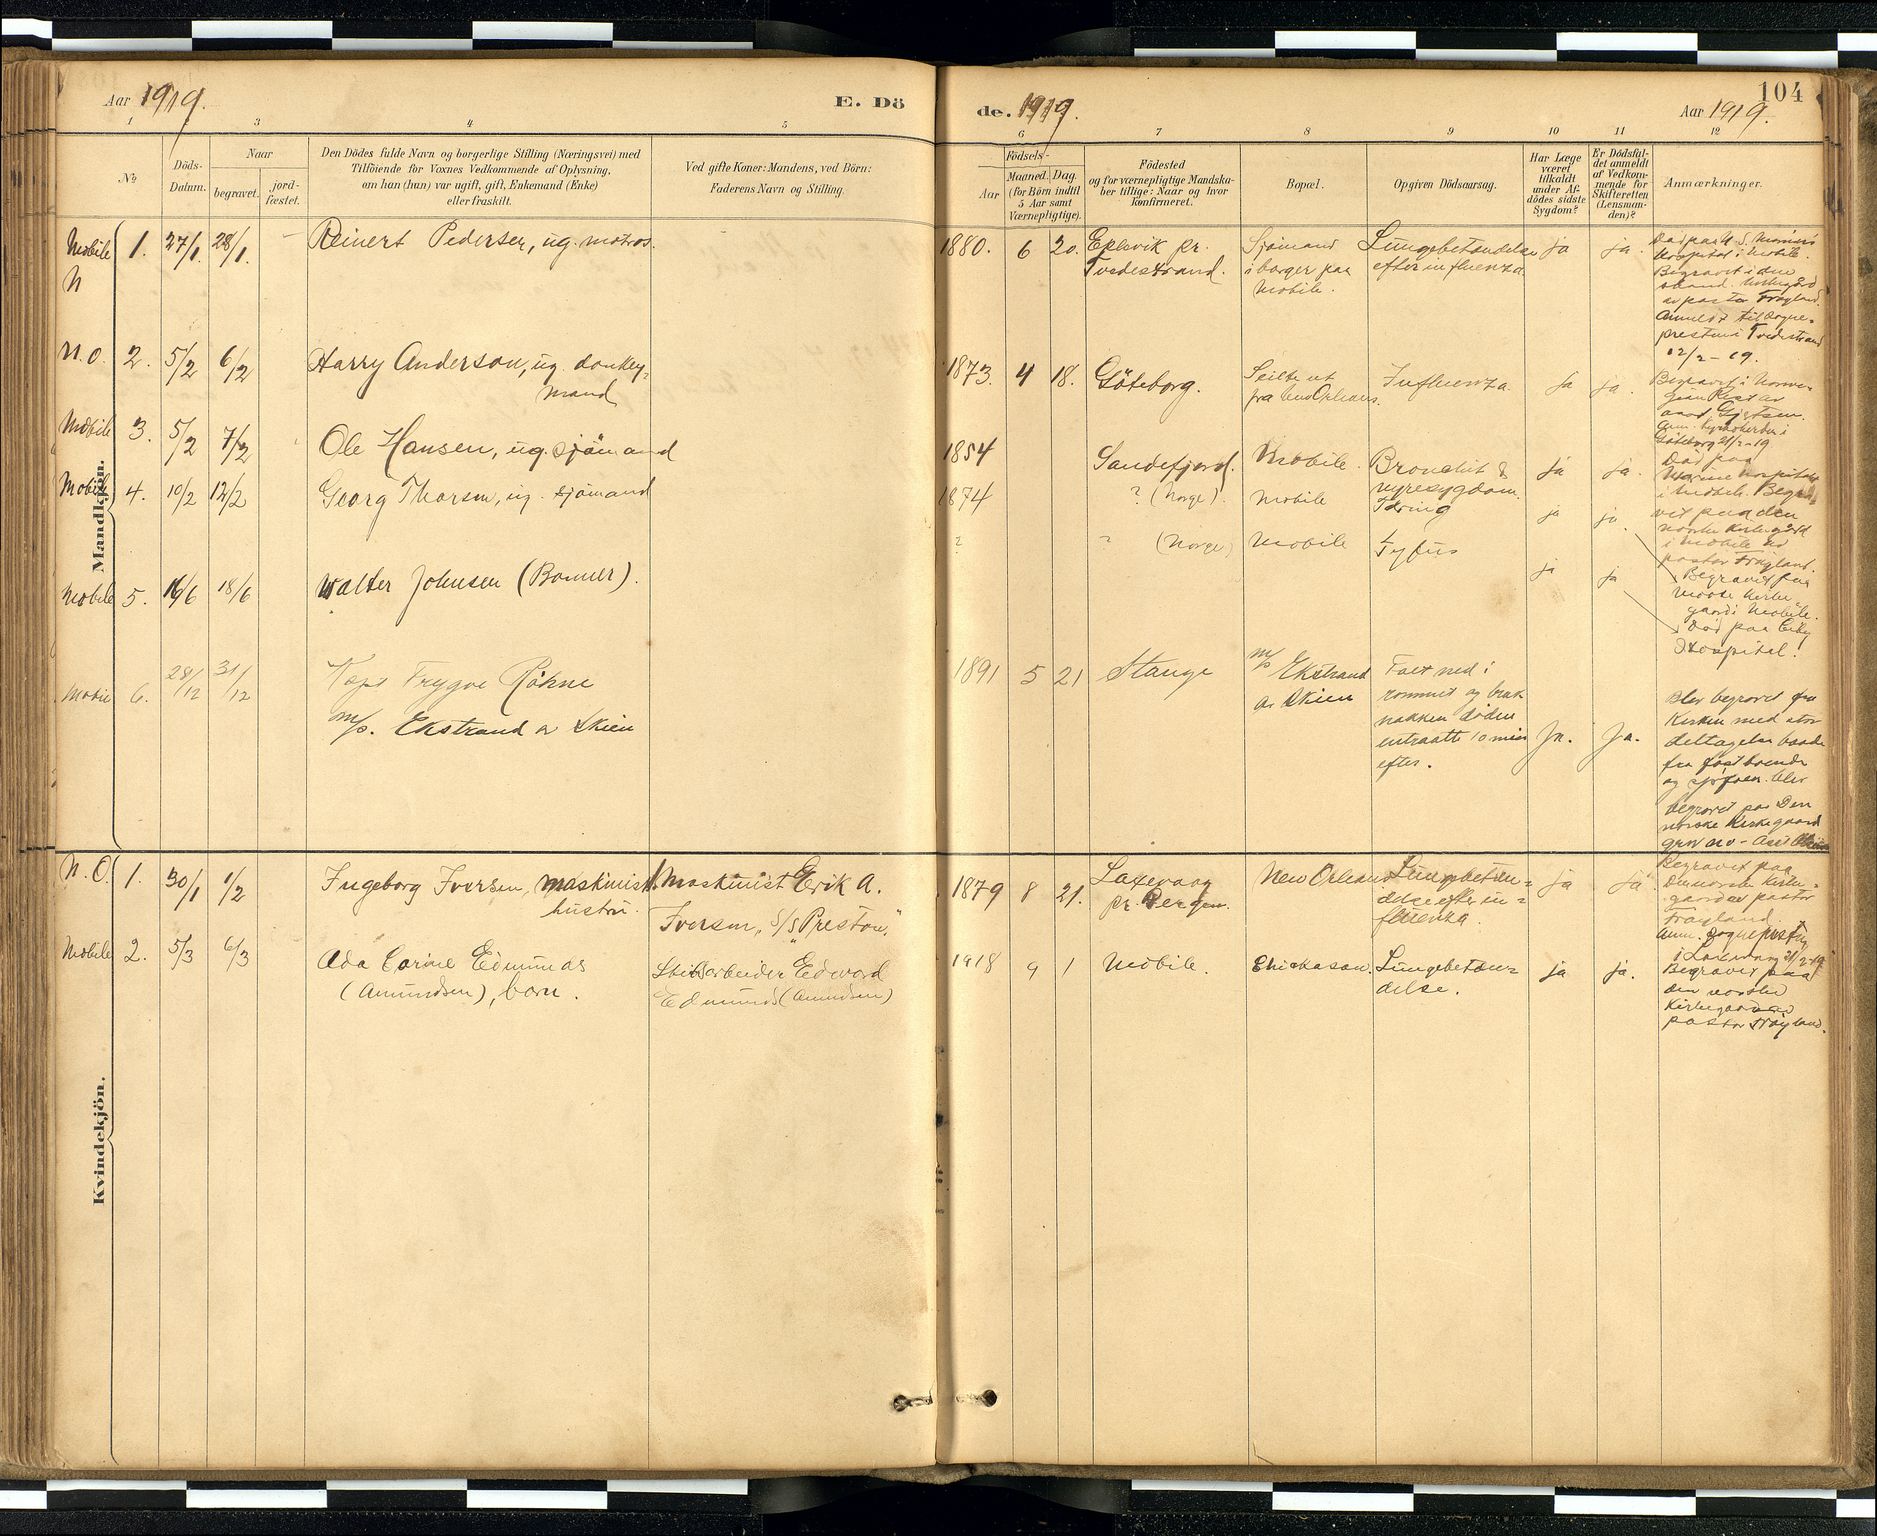 Aar 1919.
E. Dö
de. 1919.
104
Aar 1919.
1 2 3 4 5 6 7 8 9 10 11 12
No.
Döds-
Datum.
Naar
begravet.
jord-
fæstet.
Den Dödes fulde Navn og borgerlige Stilling (Næringsvei) med
Tilföiende for Voxnes Vedkommende af Oplysning,
om han (hun) var ugift, gift, Enkemand (Enke)
eller fraskilt.
Ved gifte Koner: Mandens, ved Börn:
Faderens Navn og Stilling.
Födsels-
Aar
Maaned. Dag.
(for Börn indtil
5 Aar samt
Værnepligtige).
Födested
og for værnepligtige Mandska-
ber tillige: Naar og hvor
konfirmeret.
Bopæl.
Opgiven Dödsaarsag.
Har Læge
været
tilkaldt
under Af-
dödes sidste
Sygdom?
Er Dödsfal-
det anmeldt
af Vedkom-
mende for
Skifteretten
(Lensman-
den)?
Anmærkninger.
Mandkjön.
Mobile
N
1. 27/1 28/1. Reinert Pedersen, ug. matros.
1880. 6 20.
pr.
Tvedestrand.
Sjömand
i borger paa
Mobile.
Lungebetændelse
efter influenza.
ja ja.
Död paa U.S. Marine
Hospital i Mobile.
Begravet i den
av pastor Fröyland.
Anmeldt til sogne-
presten i Tvedestrand
12/2-19.
N.O. 2. 5/2 6/2 Harry Anderson, ug. donkey-
mand
1873. 4 18. Göteborg.
Seilte ut
fra New Orleans.
Influenza.
ja ja.
Begravet i Norwe-
gian Rest av
Göteborg 21/2-19
Mobile 3. 5/2 7/2 Ole Hansen, ug. sjömand
1854 Sandefjord. Mobile. Bronchit &
nyresygdom.
ja ja.
Död paa
Marine Hospitalet
i Mobile. Begra-
vet paa den
norske Kirkegård
i Mobile av
pastor Fröyland.
Mobile 4. 10/2 12/2 Georg Thorsen, ug. sjömand
1874 ? (Norge). Mobile
ja ja.
Begravet paa
norske Kirke-
gaard i Mobile.
Mobile 5. 16/6 18/6 Walter Johnsen (Bonner).
? ? (Norge) Mobile Tyfus
ja ja
Död paa City
Hospital.
Mobile 6. 28/12 31/12 Kapt Trygve Röhne
m/s. Ekstrand av Skien
1891 5 21 Stange
m/s Ekstrand
av Skien
Falt ned i
rommet og brak
nakken döden
entraatt 10 min
efter.
Ja. Ja.
Blev begravet fra
Kirken med stor
deltagelse baade
fra fastboende
og sjöfoen. Blev
begravet paa Den
norske Kirkegaard
Kvindekjön.
N.O. 1. 30/1 1/2 Ingeborg Iversen, maskinist
hustru.
Maskinist Erik A.
Iversen, S/S "Preston."
1879 8 21.
Laxevaag
pr. Bergen.
New Orleans
Lungebetæn-
delse efter in-
fluenza.
ja ja.
Begravet paa
Den norske Kirke-
gaard av pastor
Fröyland.
Anm. Sogneprest
i Laxevaag 21/2-19
Mobile 2. 5/3 6/3 Ada Corine Edmunds
(Amundsen), barn.
Skibsarbeider Edward
Edmunds (Amundsen)
1918 9 1 Mobile. Chickasaw.
Lungebetæn-
delse.
ja ja.
Begravet paa
den norske
Kirkegaard
pastor Fröyland.